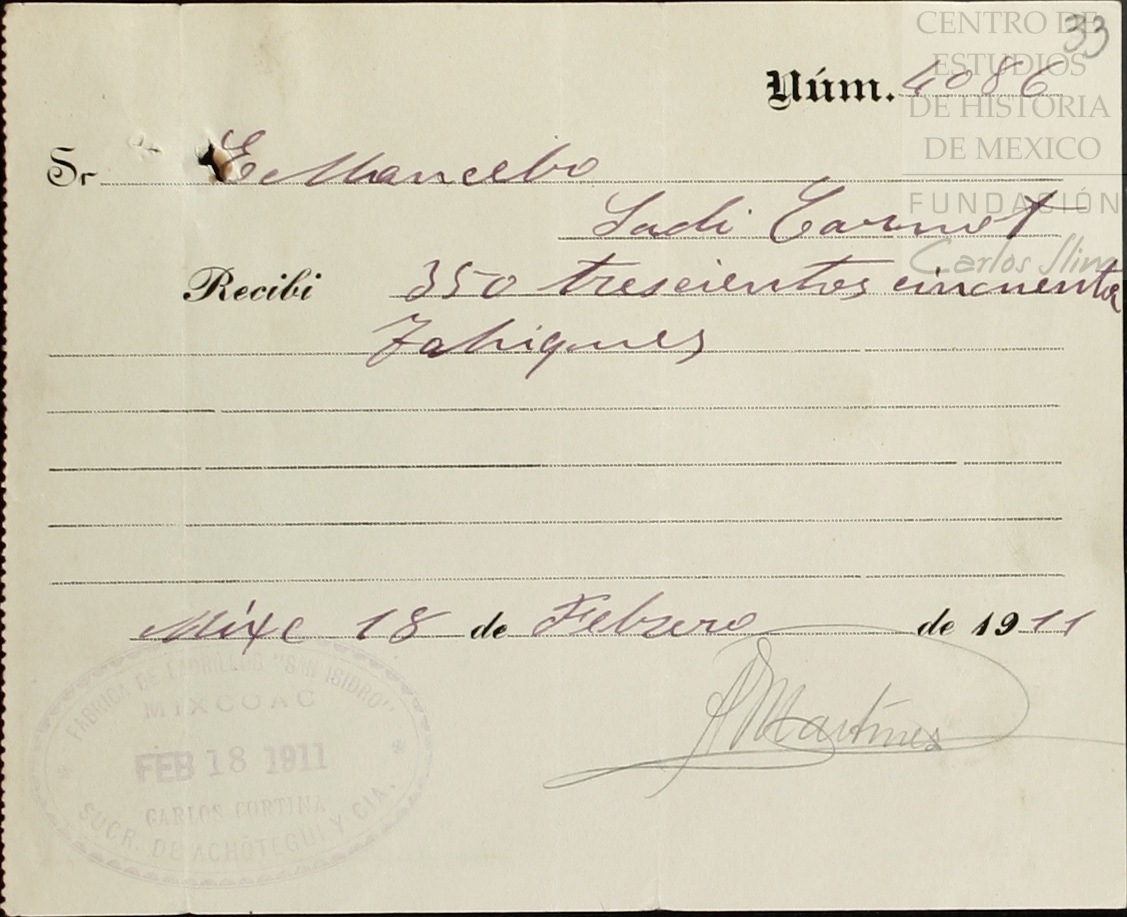 33
CENTRO DE
ESTUDIOS
DE HISTORIA
DE MEXICO
FUNDACIÓN
Carlos Slim
Núm. 4086
Sr E Mancebo
Sadi Carnot
Recibi 350 trescientos cincuenta
Tabiques
Mixc 18 de Febrero de 1911
A Martínez
FABRICA DE LADRILLOS "SAN ISIDRO"
MIXCOAC
FEB 18 1911
CARLOS CORTINA
SUCR. DE ACHÓTEGUI Y CIA.